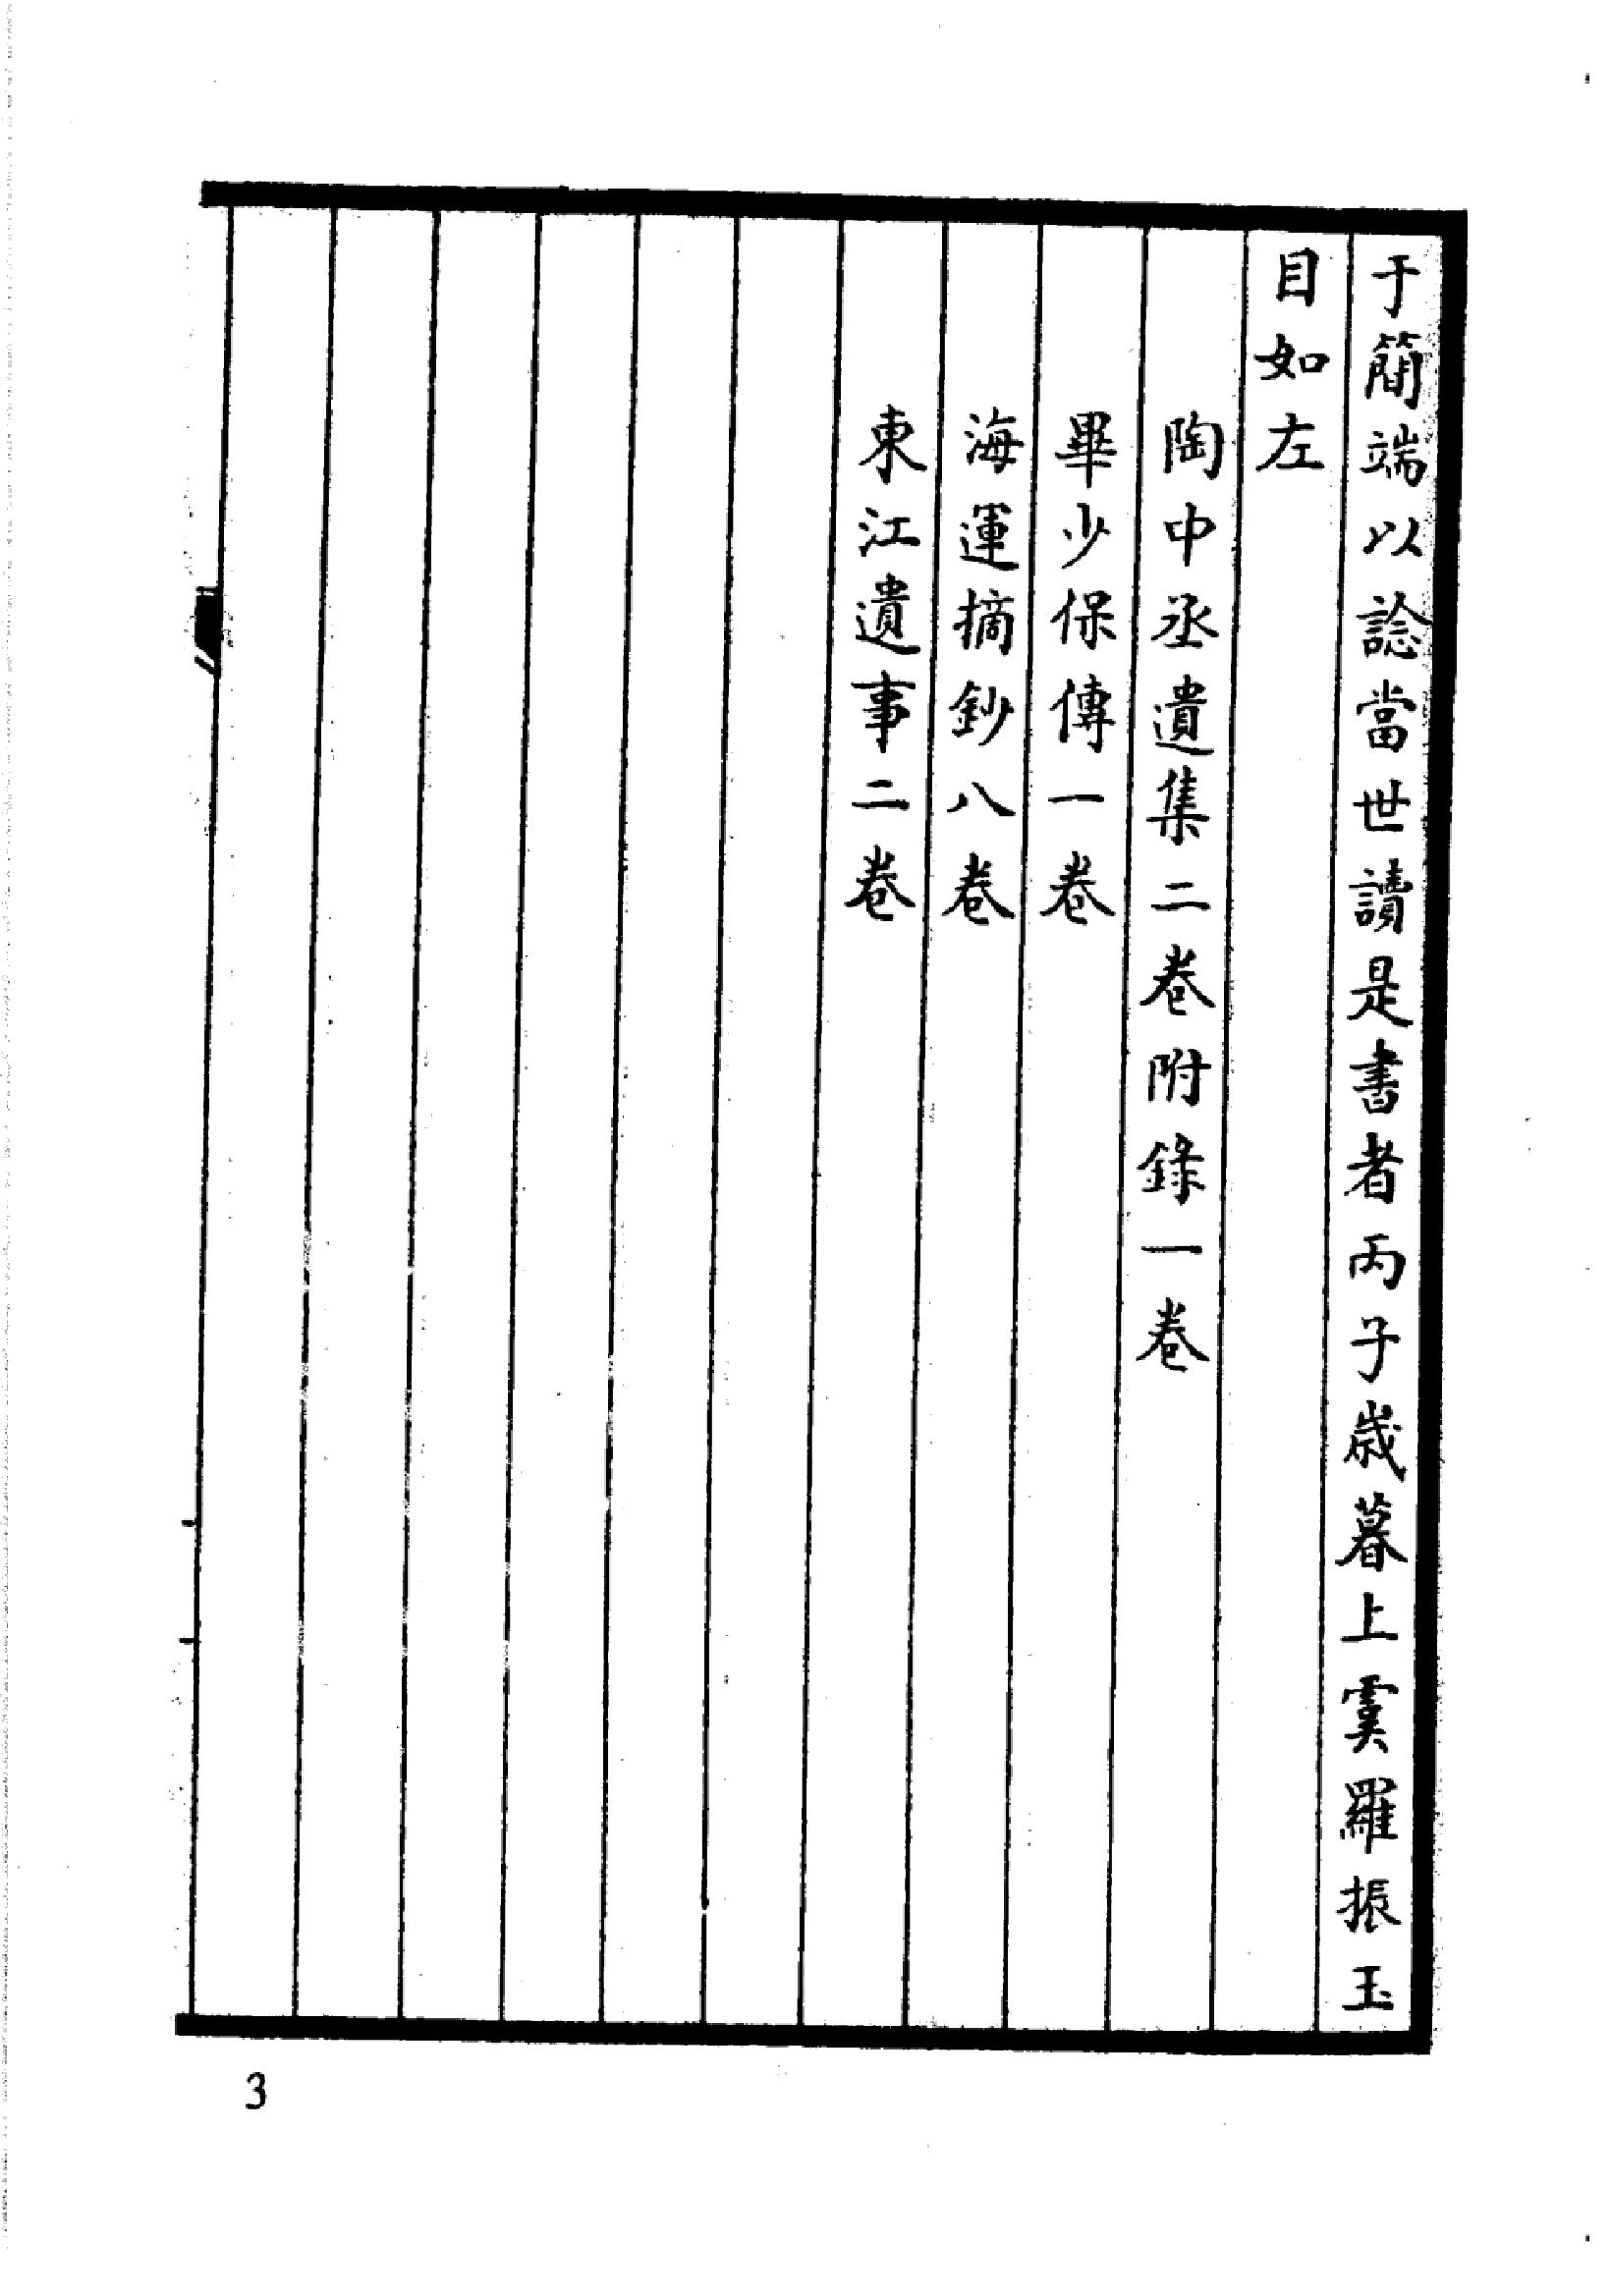 于簡端以諗當世讀是書者丙子歲暮上虞羅振玉
目如左
陶中丞遺集二卷附錄一卷
畢少保傳一卷
海運摘鈔八卷
東江遺事二卷
3